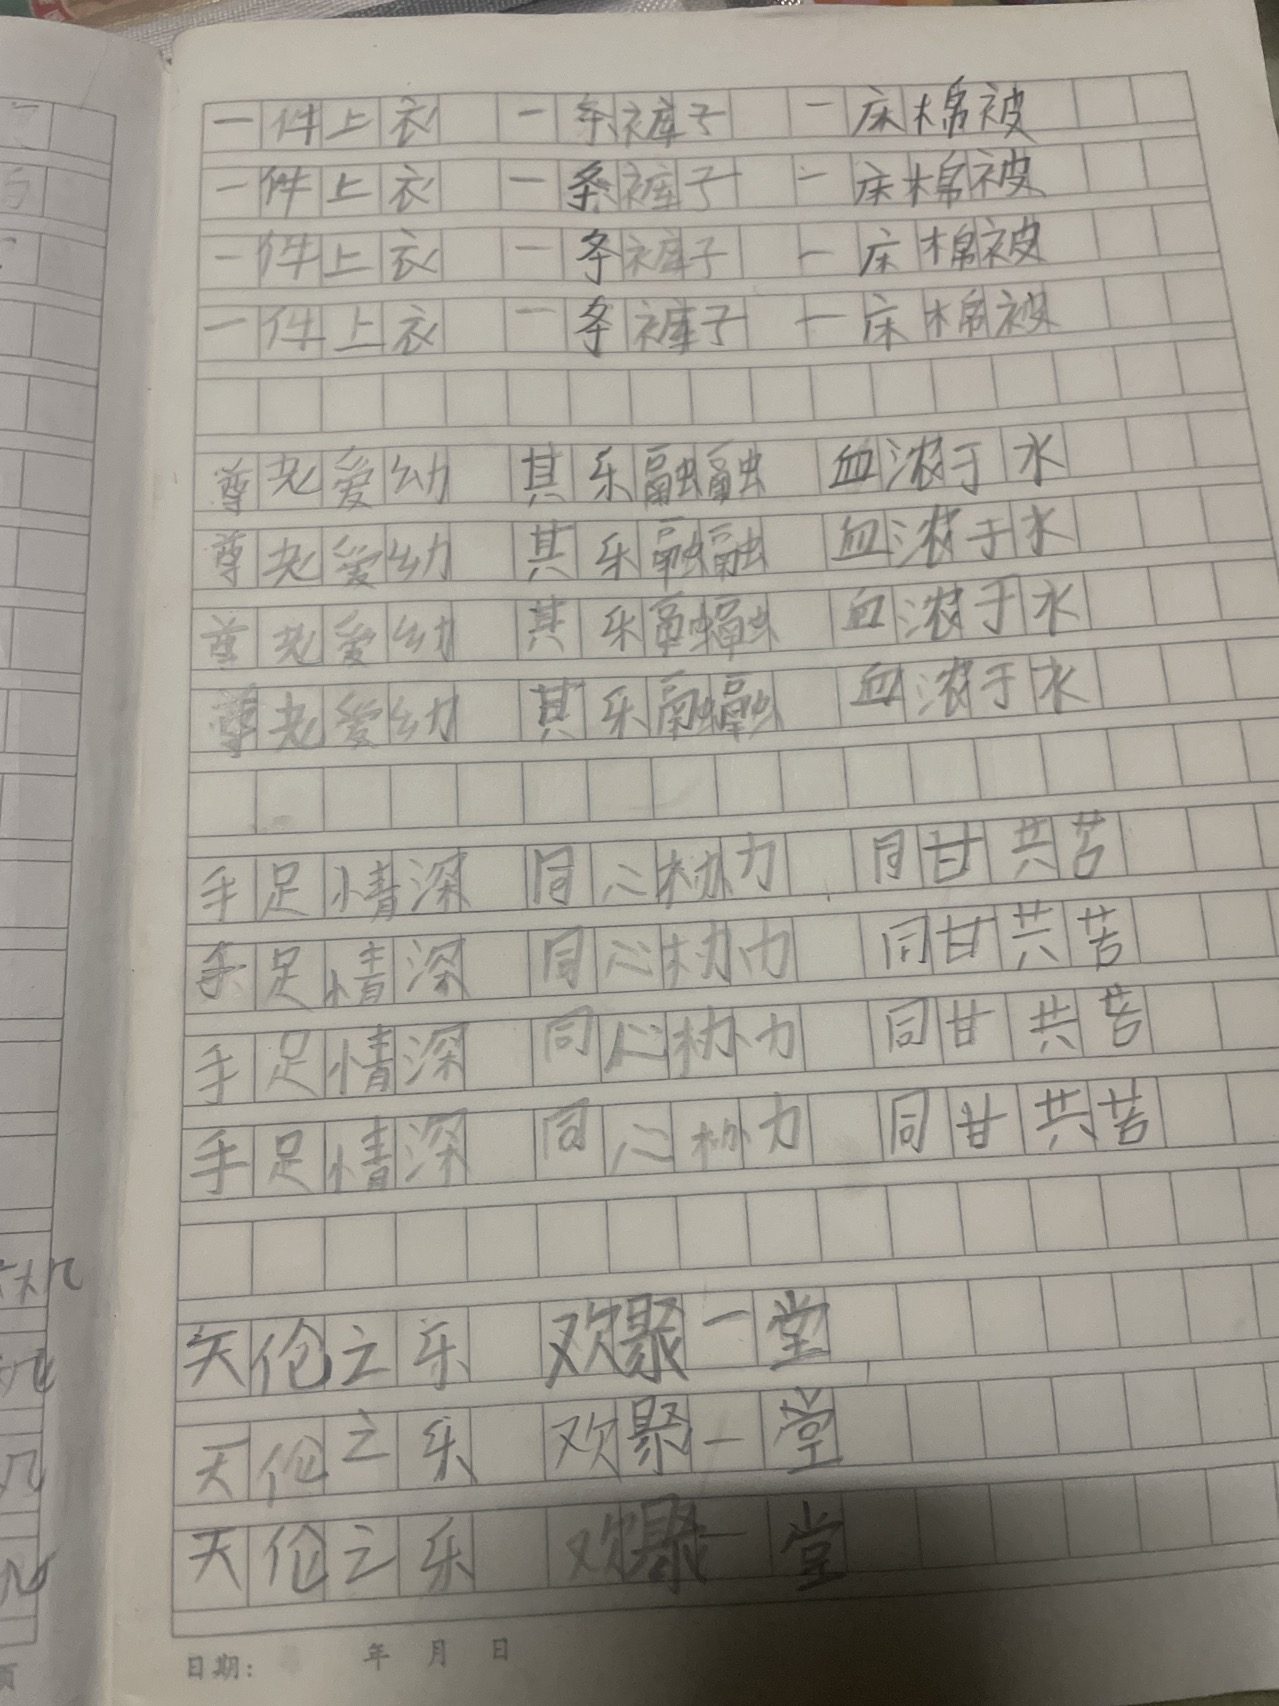 一件上衣 一条裤子 一床棉被
一件上衣 一条裤子 一床棉被
一件上衣 一条裤子 一床棉被
一件上衣 一条裤子 一床棉被
尊老爱幼 其乐融融 血浓于水
尊老爱幼 其乐融融 血浓于水
尊老爱幼 其乐融融 血浓于水
尊老爱幼 其乐融融 血浓于水
手足情深 同心协力 同甘共苦
手足情深 同心协力 同甘共苦
手足情深 同心协力 同甘共苦
手足情深 同心协力 同甘共苦
天伦之乐 欢聚一堂
天伦之乐 欢聚一堂
天伦之乐 欢聚一堂
日期: 年 月 日